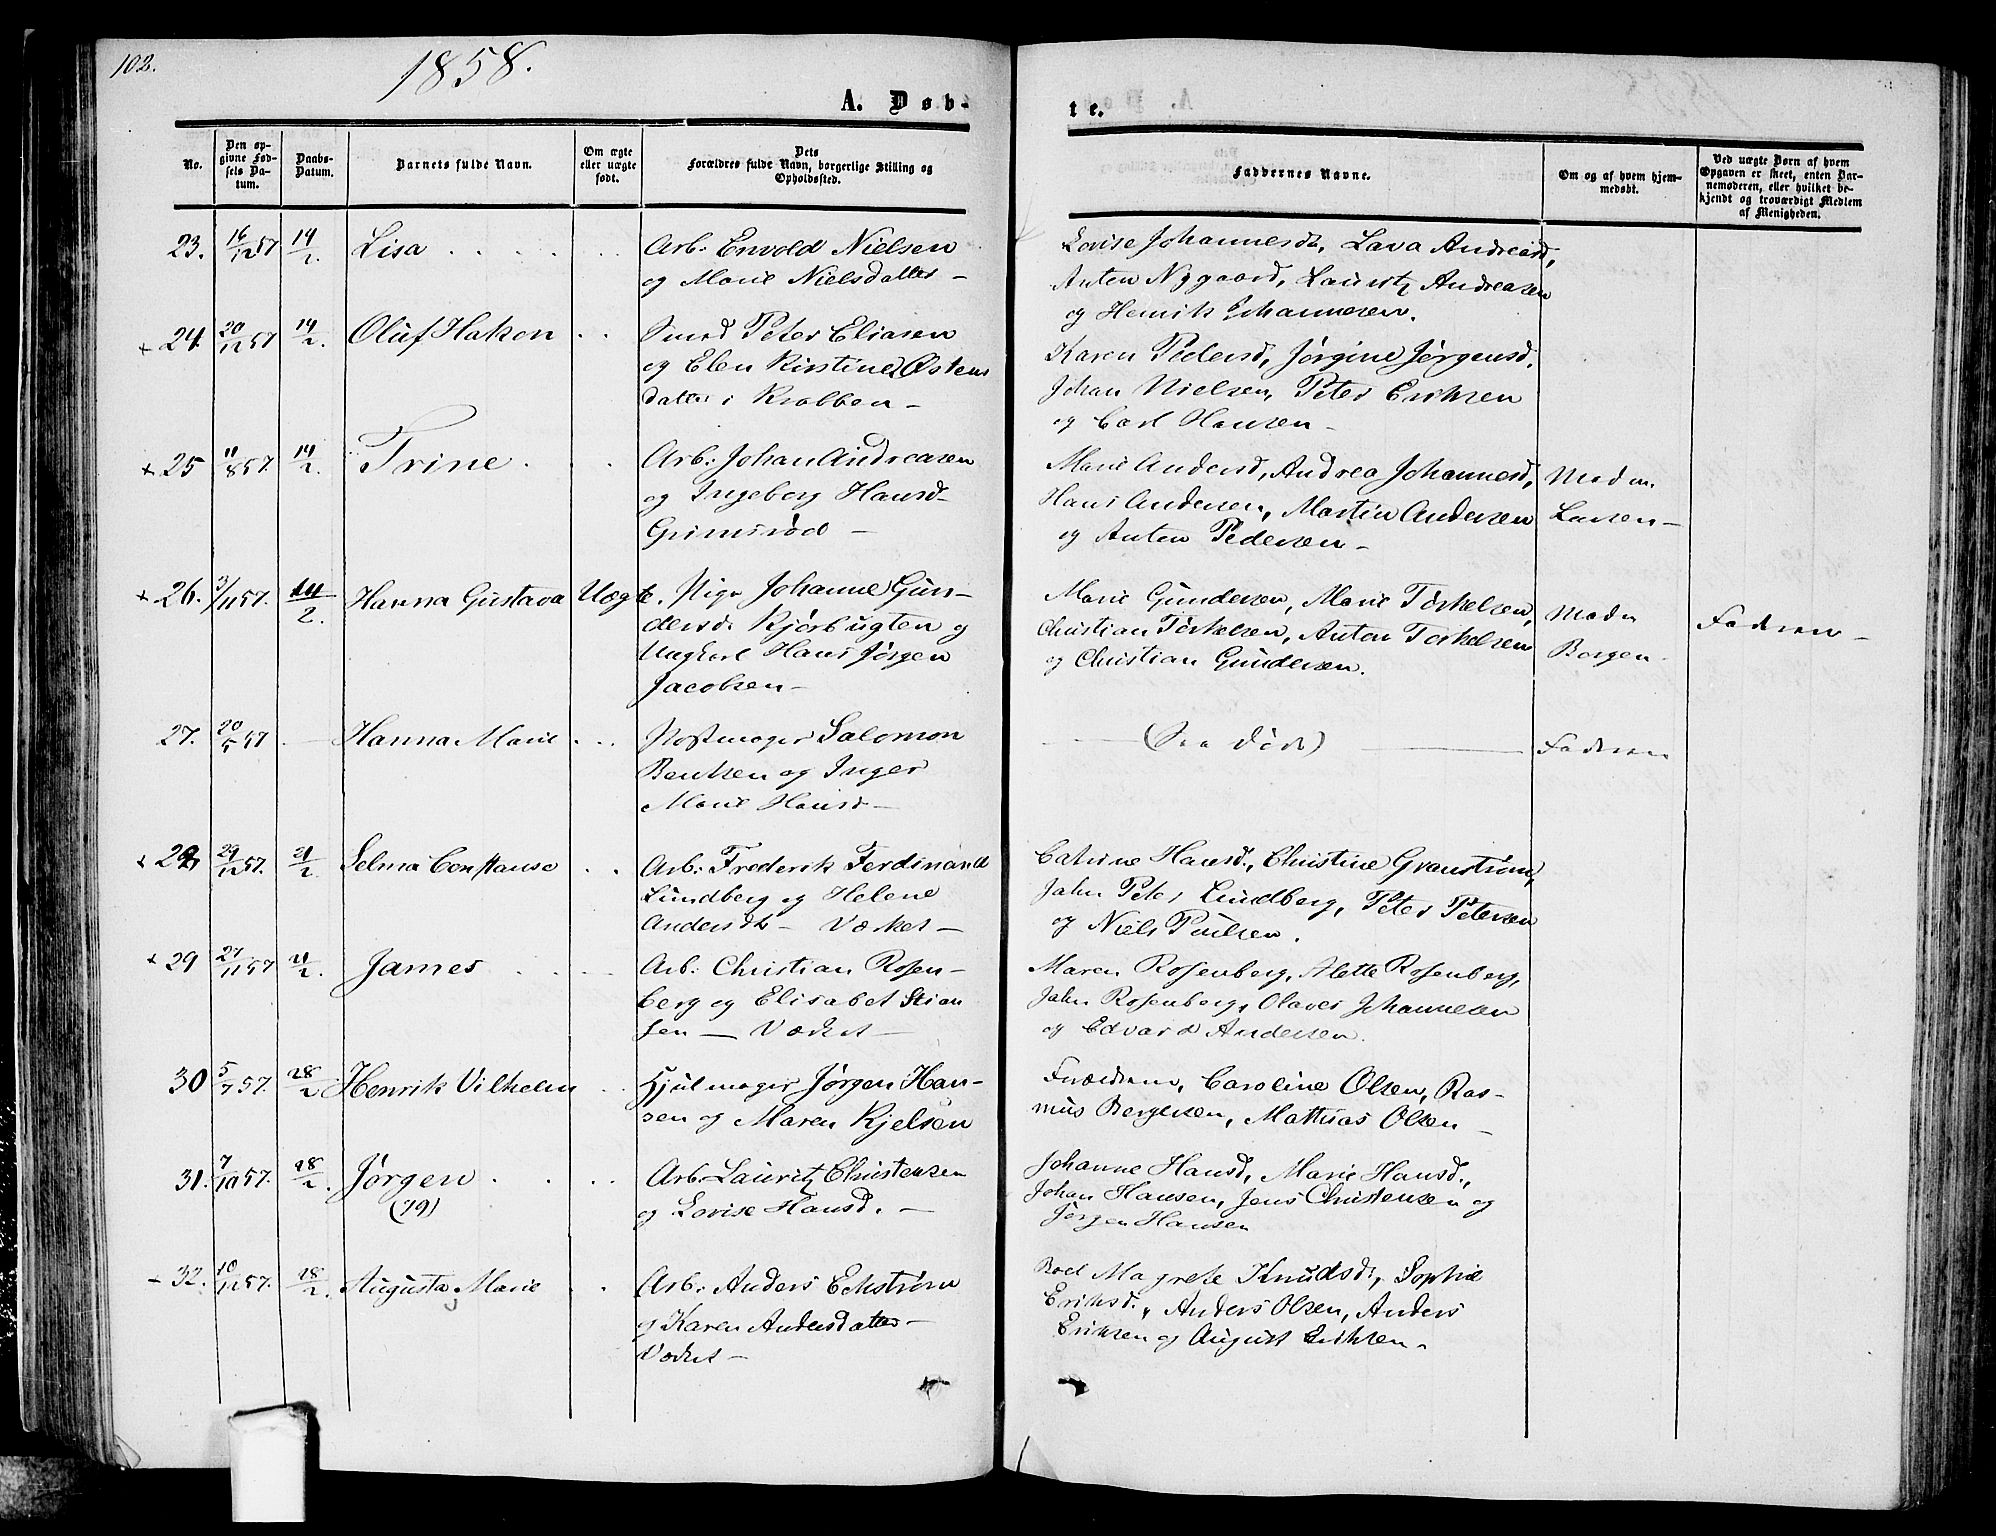 102.
1858.
A. Døb-
te.
No.
Den opgivne Fødsels Datum.
Daabs-Datum.
Barnets fulde Navn.
Om ægte eller uægte født.
Dets Forældres fulde Navn, borgerlige Stilling og Opholdssted.
Faddernes Navne.
Om og af hvem hjemmedøbt.
Ved uægte Børn af hvem Opgaven er skeet, enten Barnemoderen, eller hvilket bekjendt og troværdigt Medlem af Menigheden.
23. 16/12 57 14/2 Lisa
Arb: Envold Nielsen
og Marie Nielsdatter -
Lovise Johannesdt, Lava Andreasd,
Anton Nygaard, Lauritz Andreasen
og Henrik Johannesen.
+ 24. 20/12 57 14/2. Oluf Hakon
Smed Peter Eliasen
og Elen Kirstine Østens
datter i Krabben -
Karen Pedersd, Jørgine Jørgensd.
Johan Nielsen, Peter Eriksen
og Carl Hansen -
+ 25 11/8 57. 14/2. Trine
Arb: Johan Andreasen
og Ingeborg Hansd-
Grimsrød -
Marie Andersd, Andrea Johannesd,
Hans Andersen, Martin Andersen
og Anton Pedersen -
Madm.
Larsen -
+ 26. 3/11 57. 14/2. Hanna Gustava Uægte.
Pige Johanne Gun-
dersd. Kjørbugten og
Ungkarl Hans Jørgen
Jacobsen -
Marie Gundersen, Marie Torkelsen,
Christian Torkelsen, Anton Torkelsen
og Christian Gundersen.
Madm
Borgen
Faderen -
27. 20/5 57 - Hanna Marie
Salomon
Bentsen og Inger
Marie Hansd -
(Saa død)
Faderen
+ 28 29/12 57. 21/2. Selma Constanse
Arb: Frederik Ferdinand
Lundberg og Helene
Andersdt - Værket -
Catrine Hansd., Christine Granstrøm,
John Peter Lundberg, Peter Petersen
og Niels Paulsen.
+ 29 27/11 57 21/2. James
Arb: Christian Rosen-
berg og Elisabet Stian
sen - Værket -
Maren Rosenberg, Alette Rosenberg,
John Rosenberg, Olaves Johannesen
og Edvard Andersen.
30 5/7 57. 28/2 Henrik Vilhelm
Hjulmager Jørgen Han-
sen og Maren Kjelsen
Forældrene, Caroline Olsen, Ras-
mus Bergersen, Mathias Olsen -
31. 7/10 57. 28/2. Jørgen
(79)
Arb. Lauritz Christensen
og Lovise Hansd. -
Johanne Hansd, Marie Hansd.,
Johan Hansen, Jens Christensen og
Jørgen Hansen
- 32. 10/12 57. 28/2. Augusta Marie
Arb: Anders Eckstrøm
og Karen Andersdatter -
Værket -
Boel Magrete Knudsd, Sophie
Eriksd., Anders Olsen, Anders
Eriksen og August Eriksen.